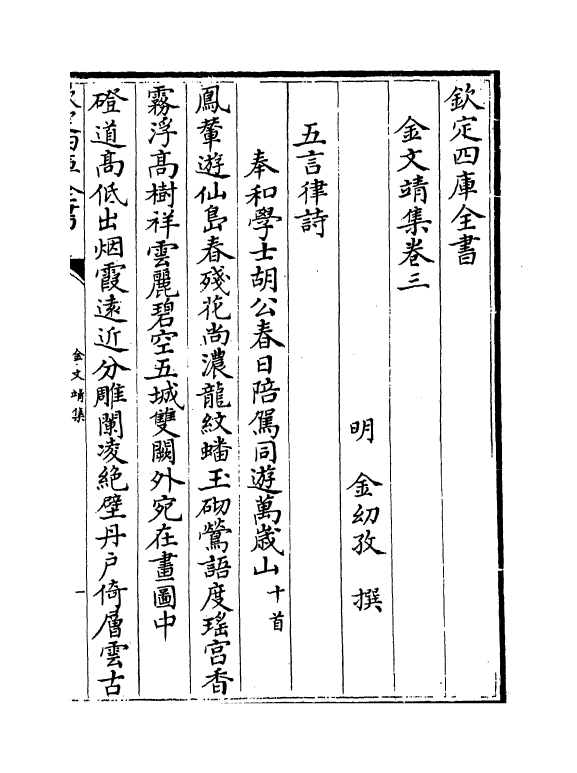 欽定四庫全書
金文靖集卷三
明　金幼孜　撰
五言律詩
奉和學士胡公春日陪駕同遊萬歲山十首
鳳輦遊仙島春殘花尚濃龍紋蟠玉砌鶯語度瑤宫香
霧浮高樹祥雲麗碧空五城雙闕外宛在畫圖中
磴道高低出烟霞遠近分雕闌凌絶壁丹戸倚層雲古
金文靖集
一